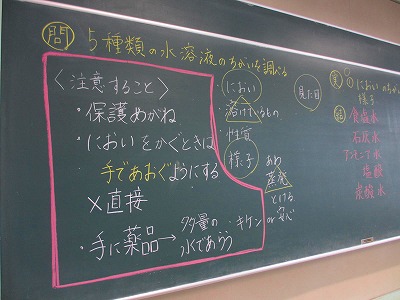 問 5種類の水溶液のちがいを調べる
〈注意すること〉
・保護めがね
・においをかぐときは
手であおぐようにする
×直接
・手に薬品→多量の
水であらう
・におい
・溶けているもの
・性質
・様子
見た目
あわ
蒸発
とける
・キケン or 安心
実 ①
においのちがい
様子
結 食塩水
石灰水
アンモニア水
塩酸
炭酸水